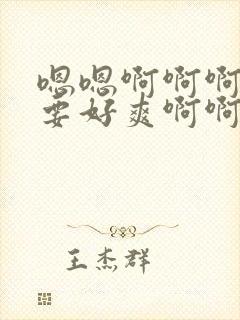 嗯嗯啊啊啊
要好爽啊啊
王杰群